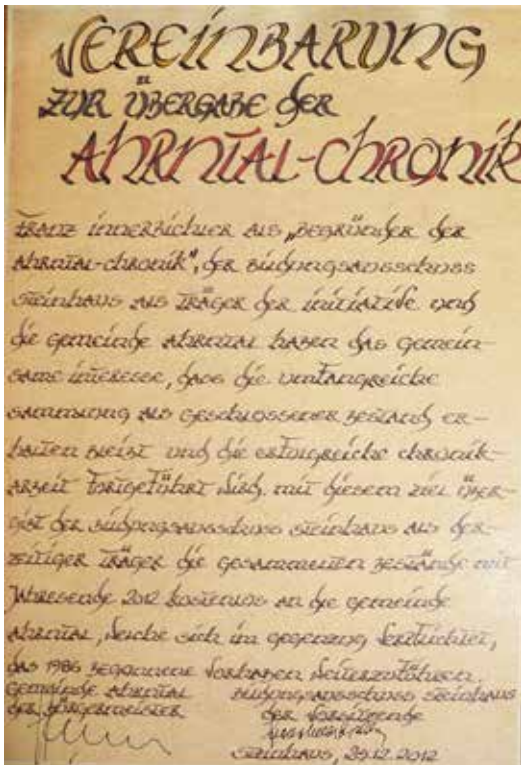 VEREINBARUNG
ZUR ÜBERGABE DER
AHRNTAL-CHRONIK
FRANZ INNERBICHLER ALS „BEGRÜNDER DER
AHRNTAL-CHRONIK", DER BILDUNGSAUSSCHUSS
STEINHAUS ALS TRÄGER DER INITIATIVE UND
DIE GEMEINDE AHRNTAL HABEN DAS GEMEIN-
SAME INTERESSE, DASS DIE UMFANGREICHE
SAMMLUNG ALS GESCHLOSSENER BESTAND ER-
HALTEN BLEIBT UND DIE ERFOLGREICHE CHRONIK-
ARBEIT FORTGEFÜHRT WIRD. MIT DIESEM ZIEL ÜBER-
GIBT DER BILDUNGSAUSSCHUSS STEINHAUS ALS DER-
ZEITIGER TRÄGER DIE GESAMMELTEN BESTÄNDE MIT
JAHRESENDE 2012 KOSTENLOS AN DIE GEMEINDE
AHRNTAL, WELCHE SICH IM GEGENZUG VERPFLICHTET,
DAS 1986 BEGONNENE VORHABEN WEITERZUFÜHREN.
GEMEINDE AHRNTAL BILDUNGSAUSSCHUSS STEINHAUS
DER BÜRGERMEISTER DER VORSITZENDE
STEINHAUS, 29.12.2012